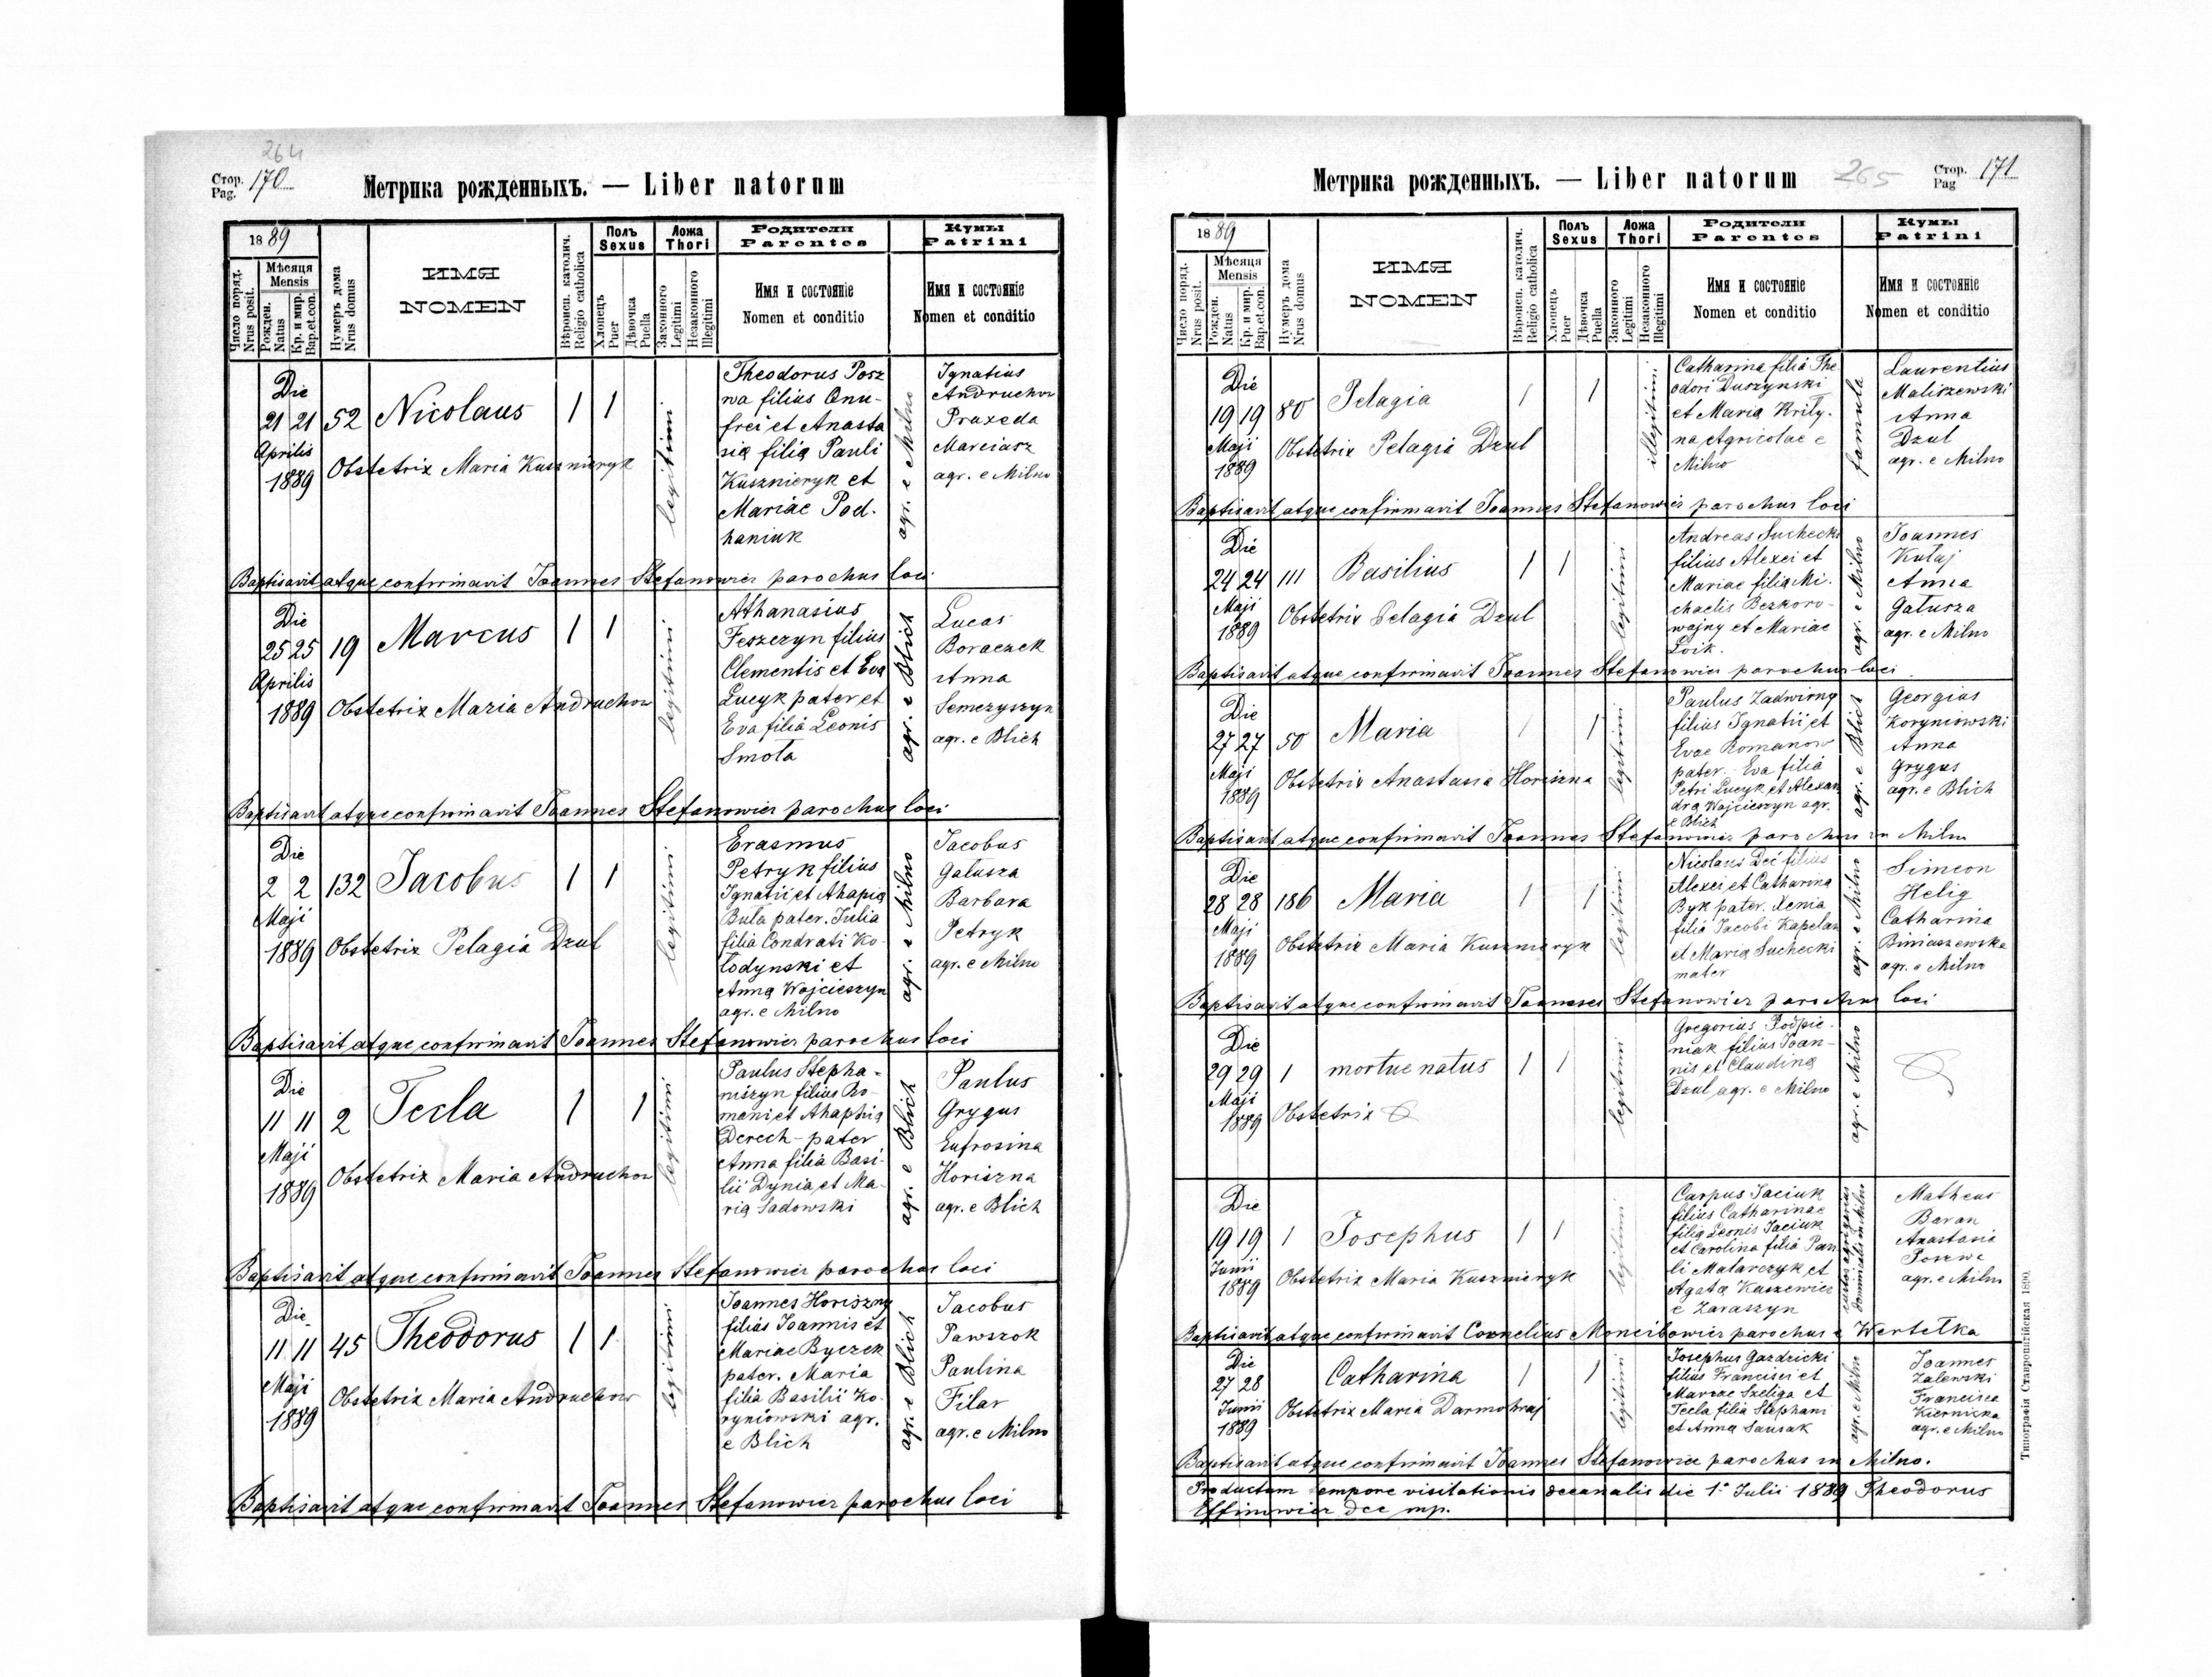 264
Стор. Pag. 170
Метрика рожденныхъ. — Liber natorum
1889
Число поряд. Nrus posit.
Мѣсяца Mensis
Рожден. Natus
Кр. и мир. Bap.et.con.
Нумеръ дома Nrus domus
ИМЯ
NOMEN
Вѣроисп. католич. Religio catholica
Полъ Sexus
Хлопецъ Puer
Дѣвочка Puella
Ложа Thori
Законного Legitimi
Незаконного Illegitimi
Родители Parentes
Имя и состояніе
Nomen et conditio
Кумы Patrini
Имя и состояніе
Nomen et conditio
Die
21 21 52 Nicolaus 1 1
Aprilis
1889
Obstetrix Maria Kusznieryk
legitimi
Theodorus Posz
wa filius Onu-
frei et Anasta
sia filia Pauli
Kusznieryk et
Mariae Pod-
haniuk
agr. e Milno
Ignatius
Andruchow
Praxeda
Marciasz
agr. e Milno
Baptisavit atque confirmavit Joannes Stefanowicz parochus loci
Die
25 25 19 Marcus 1 1
Aprilis
1889
Obstetrix Maria Andruchow
legitimi
Athanasius
Feszczyn filius
Clementis et Eva
Lucyk pater et
Eva filia Leonis
Smoła
agr. e Blich
Lucas
Boraczek
Anna
Semczyszyn
agr. e Blich
Baptisavit atque confirmavit Joannes Stefanowicz parochus loci
Die
2 2 132 Jacobus 1 1
Maji
1889
Obstetrix Pelagia Dzul
legitimi
Erasmus
Petryk filius
Ignatii et Ahapia
Buła pater. Julia
filia Condrati Ko-
łodynski et
Anna Wojcieszyn
agr. e Milno
agr. e Milno
Jacobus
Gałusza
Barbara
Petryk
agr. e Milno
Baptisavit atque confirmavit Joannes Stefanowicz parochus loci
Die
11 11 2 Tecla 1 1
Maji
1889
Obstetrix Maria Andruchow
legitimi
Paulus Stepha-
niszyn filius Ro-
mani et Ahaphia
Derech - pater
Anna filia Basi-
lii Dynia et Ma-
ria Sadowski
agr. e Blich
Paulus
Grygus
Eufrosina
Horiszna
agr. e Blich
Baptisavit atque confirmavit Joannes Stefanowicz parochus loci
Die
11 11 45 Theodorus 1 1
Maji
1889
Obstetrix Maria Andruchow
legitimi
Joannes Horiszny
filius Joannis et
Mariae Byczek
pater. Maria
filia Basilii Ko-
ryniowski agr.
e Blich
agr. e Blich
Jacobus
Pawszok
Paulina
Filar
agr. e Milno
Baptisavit atque confirmavit Joannes Stefanowicz parochus loci
Метрика рожденныхъ. — Liber natorum
265
Стор. Pag 171
1889
Число поряд. Nrus posit.
Мѣсяца Mensis
Рожден. Natus
Кр. и мир. Bap.et.con.
Нумеръ дома Nrus domus
ИМЯ
NOMEN
Вѣроисп. католич. Religio catholica
Полъ Sexus
Хлопецъ Puer
Дѣвочка Puella
Ложа Thori
Законного Legitimi
Незаконного Illegitimi
Родители Parentes
Имя и состояніе
Nomen et conditio
Кумы Patrini
Имя и состояніе
Nomen et conditio
Die
19 19 80 Pelagia 1 1
Maji
1889
Obstetrix Pelagia Dzul
illegitimi
Catharina filia The
odori Duszynski
et Maria Krily-
na Agricolae e
Milno
famula
Laurentius
Maliszewski
Anna
Dzul
agr. e Milno
Baptisavit atque confirmavit Joannes Stefanowicz parochus loci
Die
24 24 111 Basilius 1 1
Maji
1889
Obstetrix Pelagia Dzul
legitimi
Andreas Suchecki
filius Alexei et
Mariae filia Mi-
chaelis Bezkoro-
wajny et Mariae
Loik.
agr. e Milno
Joannes
Kułaj
Anna
Gałusza
agr. e Milno
Baptisavit atque confirmavit Joannes Stefanowicz parochus loci
Die
27 27 50 Maria 1 1
Maji
1889
Obstetrix Anastasia Horiszna
legitimi
Paulus Zadwirny
filius Ignatii et
Evae Romanow
pater. Eva filia
Petri Lucyk et Alexan
dra Wojcieszyn agr.
e Blich
agr. e Blich
Georgius
Koryniowski
Anna
Grygus
agr. e Blich
Baptisavit atque confirmavit Joannes Stefanowicz parochus in Milno
Die
28 28 186 Maria 1 1
Maji
1889
Obstetrix Maria Kusznieryk
legitimi
Nicolaus Dec filius
Alexei et Catharina
Byk pater. Xenia
filia Jacobi Kapelan
et Maria Suchecki
mater
agr. e Milno
Simeon
Helig
Catharina
Biniaszewska
agr. e Milno
Baptisavit atque confirmavit Joannes Stefanowicz parochus loci
Die
29 29 1 mortue natus 1 1
Maji
1889
Obstetrix
legitimi
Gregorius Podpie-
niak filius Joan-
nis et Claudina
Dzul agr. e Milno
agr. e Milno
Die
19 19 1 Josephus 1 1
Junii
1889
Obstetrix Maria Kusznieryk
legitimi
Carpus Jaciuk
filius Catharinae
filia Leonis Jaciuk
et Carolina filia Pau-
li Matarczyk et
Agata Kaszewicz
e Zaraszyn
dominicalis in Milno
Matheus
Baran
Anastasia
Poszwa
agr. e Milno
Baptisavit atque confirmavit Cornelius Moncibowicz parochus e Wertełka
Die
27 28 Catharina 1 1
Junii
1889
Obstetrix Maria Darmohraj
legitimi
Josephus Gazdzicki
filius Francisci et
Mariae Szeliga et
Tecla filia Stephani
et Anna Sausak
agr. e Milno
Joannes
Zalewski
Francisca
Kiernicka
agr. e Milno
Baptisavit atque confirmavit Joannes Stefanowicz parochus in Milno.
Productum tempore visitationis decanalis die 1 Julii 1889 Theodorus
Effinowicz dec mp.
Типографія Ставропигійская 1890.